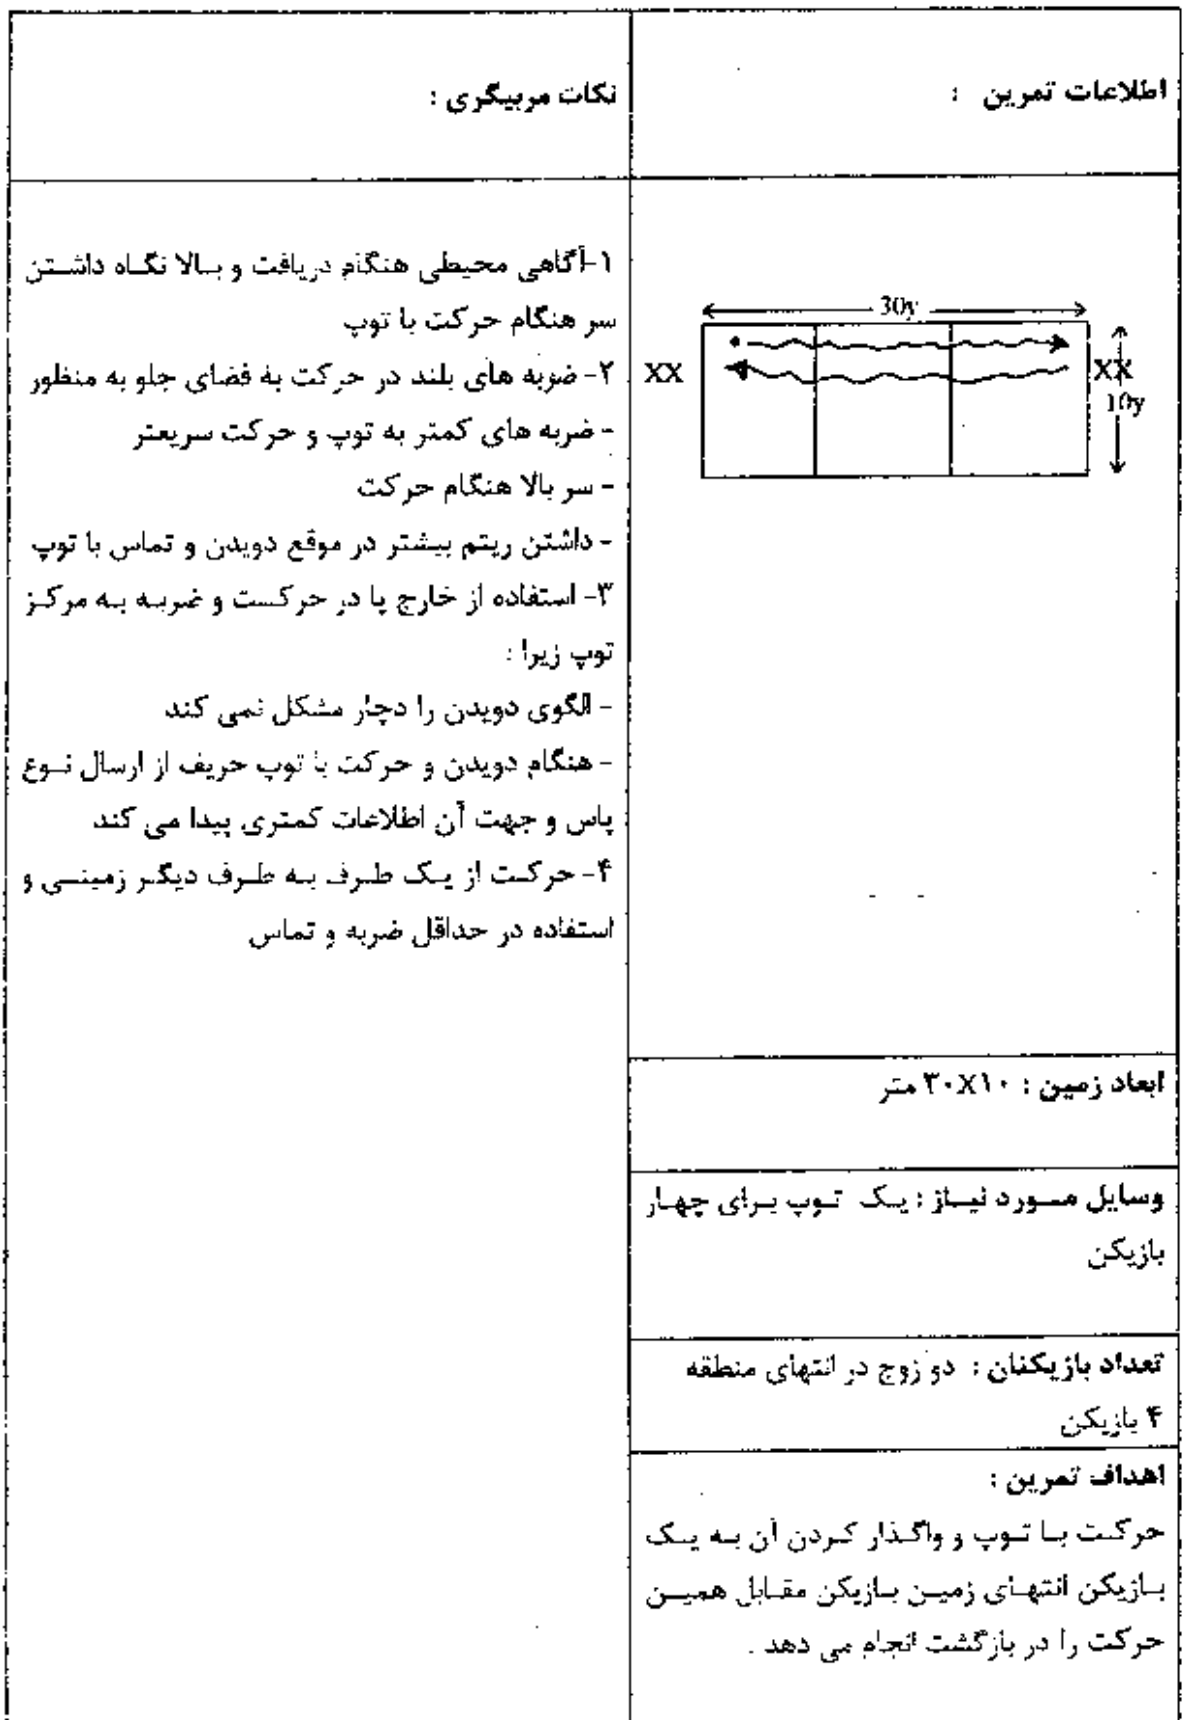 اطلاعات تمرین :
30y
XX
XX
10y
ابعاد زمین : ۳۰X۱۰ متر
وسایل مورد نیاز : یک توپ برای چهار
بازیکن
تعداد بازیکنان : دو زوج در انتهای منطقه
۴ بازیکن
اهداف تمرین :
حرکت با توپ و واگذار کردن آن به یک
بازیکن انتهای زمین بازیکن مقابل همین
حرکت را در بازگشت انجام می دهد .
نکات مربیگری :
۱-آگاهی محیطی هنگام دریافت و بالا نگاه داشتن
سر هنگام حرکت با توپ
۲- ضربه های بلند در حرکت به فضای جلو به منظور
- ضربه های کمتر به توپ و حرکت سریعتر
- سر بالا هنگام حرکت
- داشتن ریتم بیشتر در موقع دویدن و تماس با توپ
۳- استفاده از خارج پا در حرکت و ضربه به مرکز
توپ زیرا :
- الگوی دویدن را دچار مشکل نمی کند
- هنگام دویدن و حرکت با توپ حریف از ارسال نوع
پاس و جهت آن اطلاعات کمتری پیدا می کند
۴- حرکت از یک طرف به طرف دیگر زمینی و
استفاده در حداقل ضربه و تماس